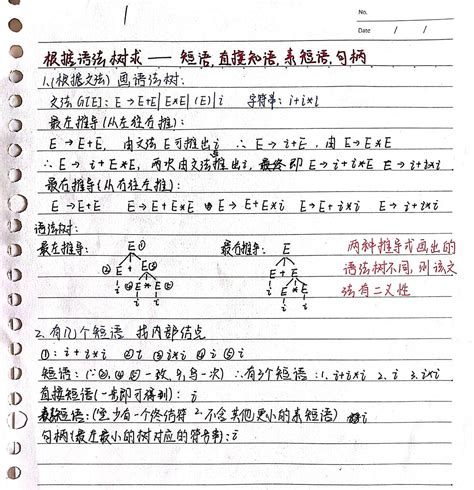 No.
Date
根据语法树求 —— 短语,直接短语,素短语,句柄
1.(根据文法)画语法树:
文法G[E]: E→E+E|E*E|(E)|i 字符串: i+i*i
最左推导(从左往右推):
E→E+E, 由文法E可推出i ∴E→i+E, 由E→E*E
∴E→i+E*E, 两次由文法推出i, 最终即E→i+i*E E→i+i*i
最右推导(从右往左推):
E→E+E E→E+E*E E→E+E*i E→E+i*i E→i+i*i
语法树:
最左推导: E① 最右推导: E 两种推导式画出的
语法树不同,则该文
法有二义性
② E + E ③ E + E
i ④ E * E ⑤ i E * E
i i i i
2.有几个短语 找内部结点
①: i+i*i ②i ③i*i ④i ⑤i
短语:(∵②,④,⑤一致,只算一次) ∴有3个短语: 1.i+i*i 2.i 3.i*i
直接短语(一步即可得到): i
素短语:(至少有一个终结符 2.不含其他更小的素短语) i
句柄(最左最小的树对应的符号串): i